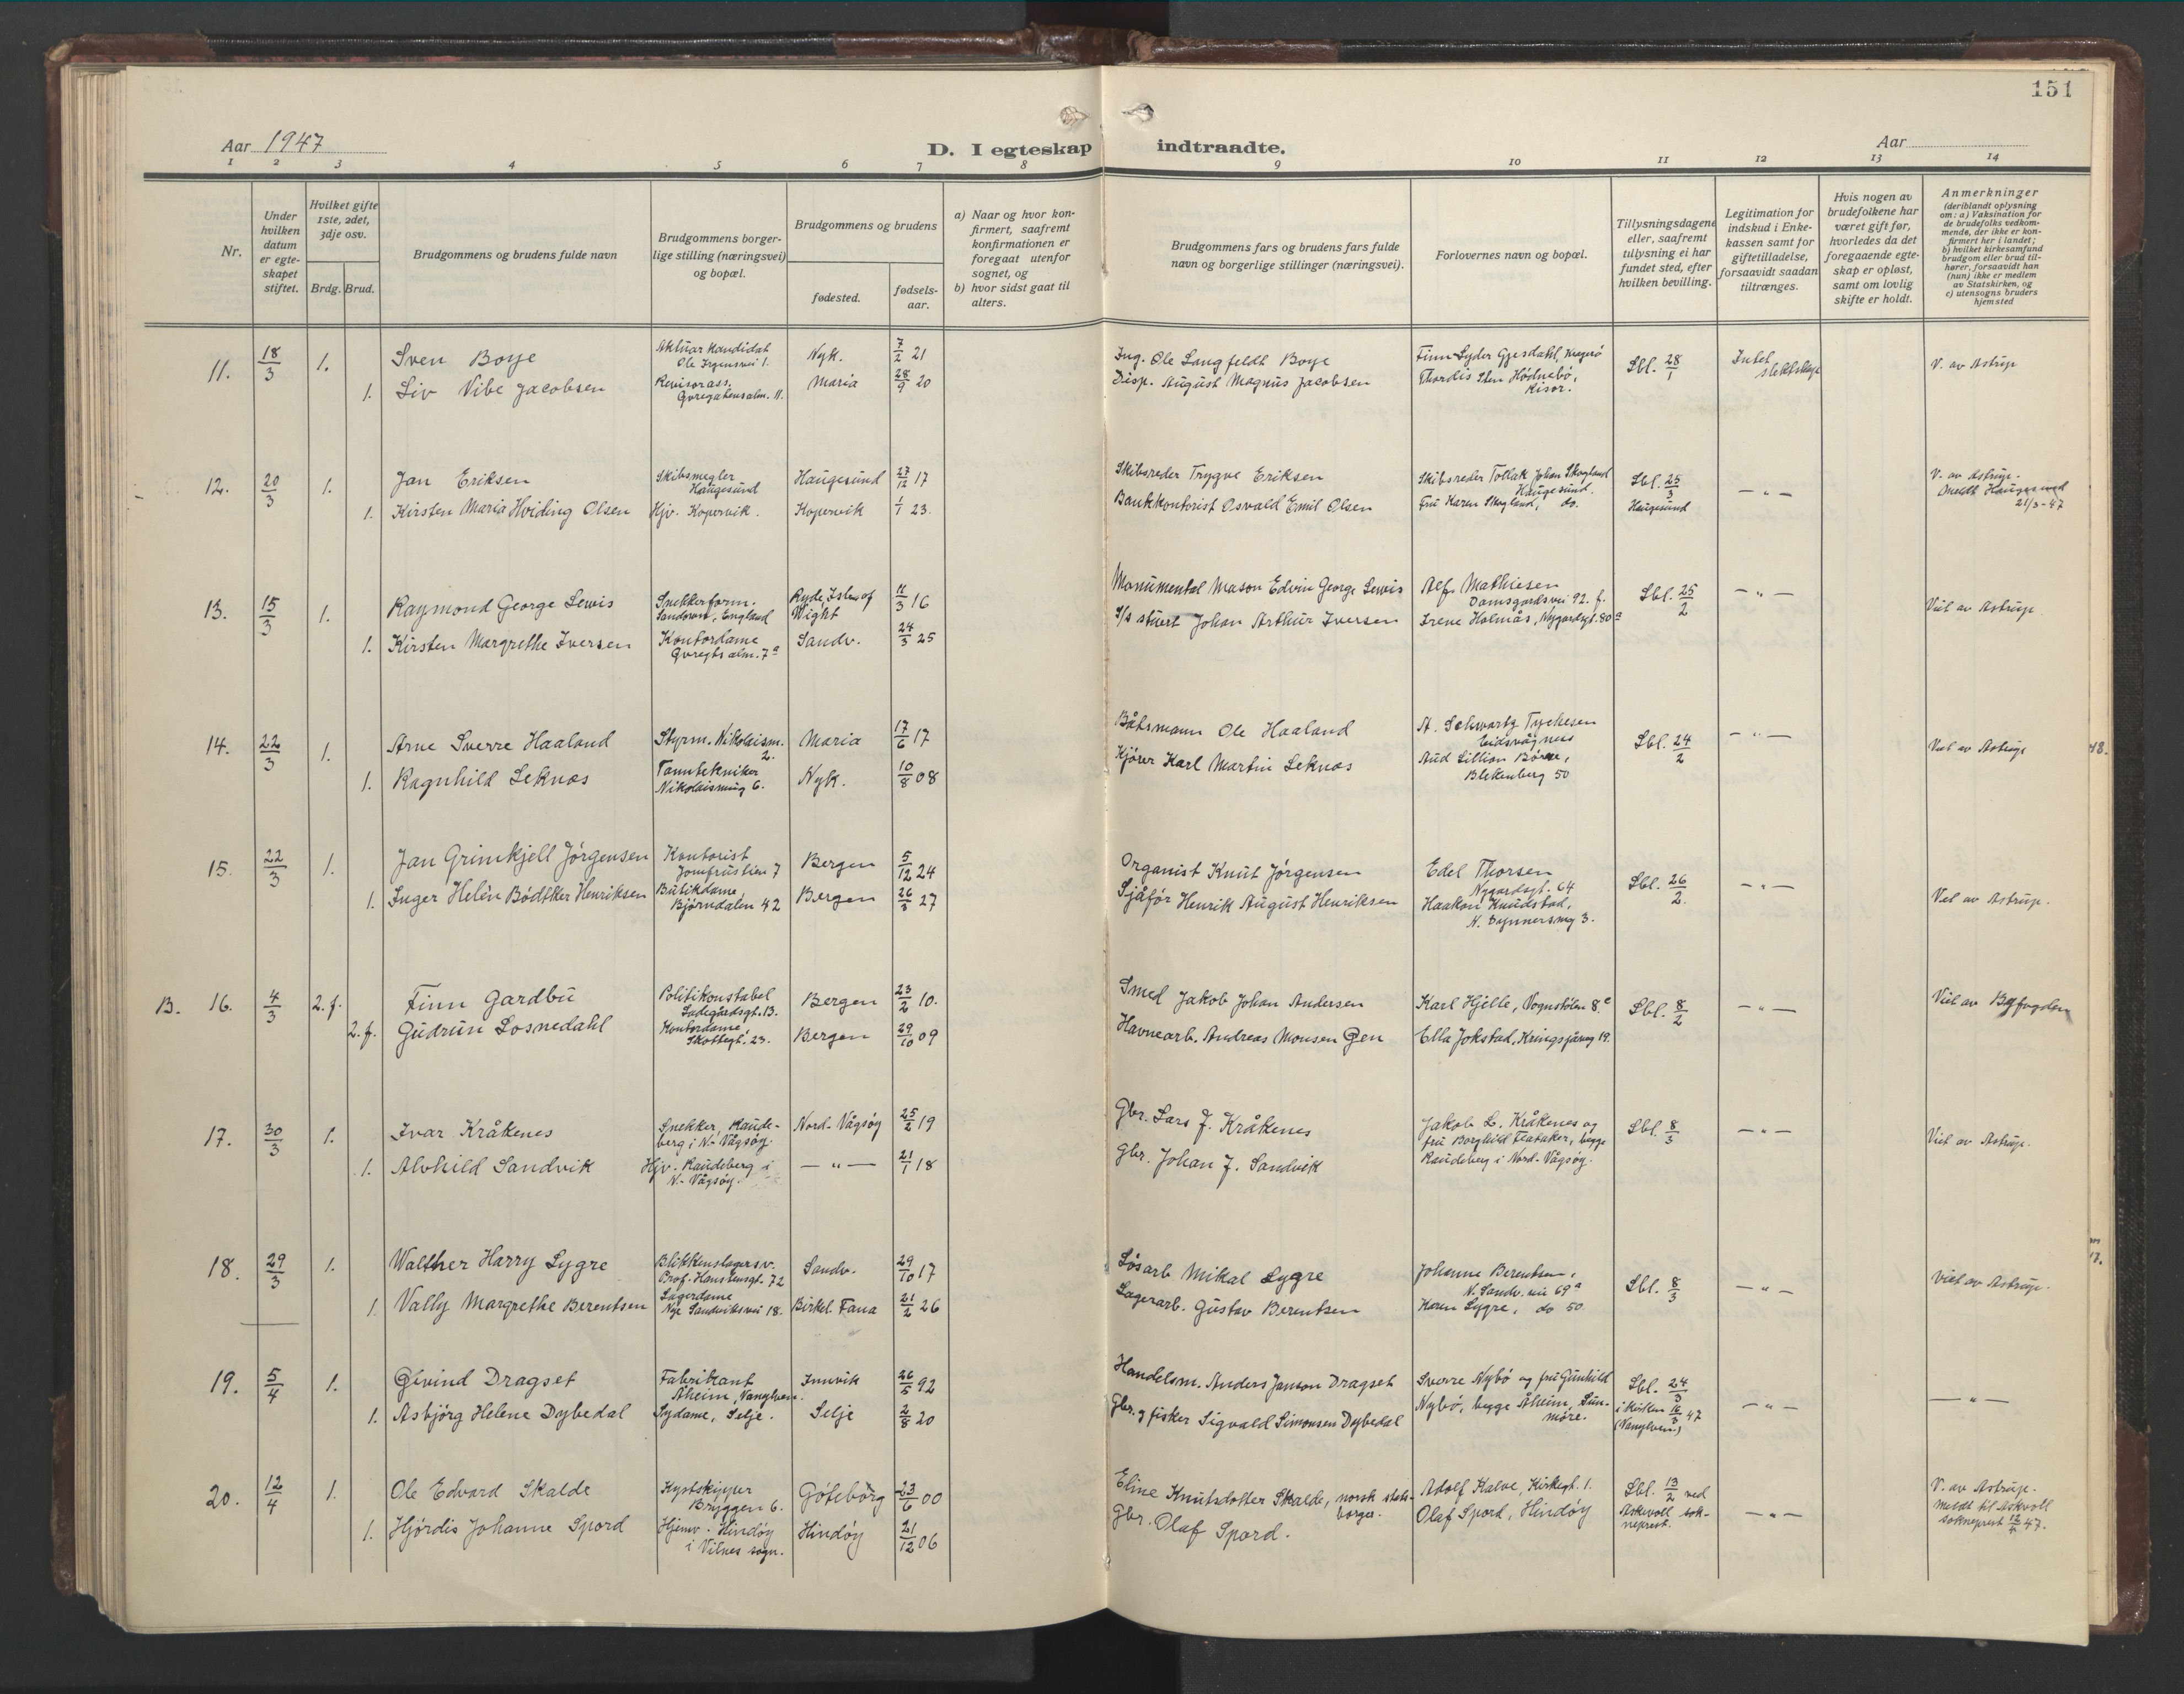 151
Aar 1947
D. I egteskap indtraadte.
Aar
1 2 3 4 5 6 7 8 9 10 11 12 13 14
Nr.
Under hvilken datum er egteskapet stiftet.
Hvilket gifte 1ste, 2det, 3dje osv.
Brdg. Brud.
Brudgommens og brudens fulde navn
Brudgommens borgerlige stilling (næringsvei) og bopæl.
Brudgommens og brudens
fødested.
fødselsaar.
a) Naar og hvor konfirmert, saafremt konfirmationen er foregaat utenfor sognet, og
b) hvor sidst gaat til alters.
Brudgommens fars og brudens fars fulde navn og borgerlige stillinger (næringsvei).
Forlovernes navn og bopæl.
Tillysningsdagene eller, saafremt tillysning ei har fundet sted, efter hvilken bevilling.
Legitimation for indskud i Enkekassen samt for giftetilladelse, forsaavidt saadan tiltrænges.
Hvis nogen av brudefolkene har været gift før, hvorledes da det foregaaende egteskap er opløst, samt om lovlig skifte er holdt.
Anmerkninger (deriblandt oplysning om: a) Vaksination for de brudefolks vedkommende, der ikke er konfirmert her i landet; b) hvilket kirkesamfund brudgom eller brud tilhører, forsaavidt han (hun) ikke er medlem av Statskirken, og c) utensogns bruders hjemsted
11. 18/3 1. Sven Boye Aktuar kandidat Ole Irgensvei 1. Nyk. 7/2 21 Ing. Ole Langfeldt Boye Finn Lyder Gjesdahl, Kragerø Lbl. 28/1 Intet slektskap V. av Astrup
1. Liv Vibe Jacobsen Revisorass. Øvregatensalm. 11. Maria 28/9 20 Disp. August Magnus Jacobsen Thordis Hødnebø, Risør.
12. 20/3 1. Jan Eriksen Skibsmegler Haugesund Haugesund 27/12 17 Skibsreder Trygve Eriksen Skibsreder Tollak Johan Skogland Haugesund. Lbl. 25/3 Haugesund — " — V. av Astrup. Meldt Haugesund 21/3-47
1. Kirsten Maria Hviding Olsen Hjv. Kopervik. Kopervik 1/1 23. Bankkontorist Osvald Emil Olsen Fru Karen Skogland, do.
13. 15/3 1. Raymond George Lewis Snekkerform. Sandown, England Ryde Isle of Wight 11/3 16 Monumental Mason Edwin George Lewis Alf Mathiesen Damsgårdsvei 92. f. Lbl. 25/2 — " — Viet av Astrup
1. Kirsten Margrethe Iversen Kontordame Øvregts alm. 7a Sandv. 24/3 25 S/s stuert Johan Arthur Iversen Irene Holmås, Nygardsgt. 80a
14. 22/3 1. Arne Sverre Haaland Styrm. Nikolaism. 2. Maria 17/6 17 Båtsmann Ole Haaland A. Schwartz Tychesen Eidsvågnes Lbl. 24/2 — " — Viet av Astrup
1. Ragnhild Leknes Tanntekniker Nikolaismug 6. Nyk. 10/8 08 Kjører Karl Martin Leknes Aud Lillian Børne, Blekenberg 50
15. 22/3 1. Jan Grimkjell Jørgensen Kontorist Jomfrustien 7 Bergen 5/12 24 Organist Knut Jørgensen Edel Thorsen Nygardsgt. 64 Lbl. 26/2. — " — Vet av Astrup.
1. Inger Helèn Bødtker Henriksen Butikdame, Bjørndalen 42 Bergen 26/3 27 Sjåfør Henrik August Henriksen Haakon Knudstad,
B. 16. 4/3 2. f. Finn Gardbu Politikonstabel Ladegårdsgt. 13. Bergen 23/2 10. Smed Jakob Johan Andersen Karl Hjelle, Vognstølen 8c Lbl. 8/2 — " — Viet av Byfogden
2. f. Gudrun Losnedahl Kontordame Skottegt. 23. Bergen 29/10 09 Havnearb. Andreas Monsen Øen Ella Jokstad, Kringsjåveg 19.
17. 30/3 1. Ivar Kråkenes Snekker, Raudeberg i N-Vågsøy. Nord-Vågsøy 25/2 19 Gbr. Lars J. Kråkenes Jakob L. Kråkenes og fru Borghild Flataker, begge Raudeberg i Nord-Vågsøy. Lbl. 8/3 — " — Viet av Astrup.
1. Alvhild Sandvik Hjv. Raudeberg i N.-Vågsøy. — " — 21/1 18 Gbr. Johan J. Sandvik
18. 29/3 1. Walther Harry Lygre Blikkenslagersv. Prof. Hansteensgt. 72 Sandv. 29/10 17 Løsarb Mikal Lygre Johanne Berentsen, N. Sandv. vei 69a Lbl. 8/3 — " — Viet av Astrup.
1. Vally Margrethe Berentsen Lagerdame Nye Sandviksvei 18. Birkel. Fana 21/2 26 Lagerarb. Gustav Berentsen Karen Lygre, do 50
19. 5/4 1. Øivind Dragset Fabrikant Åheim, Vanylven. Innvik 26/5 92 Handelsm. Anders Janson Dragset Sverre Nybø og fru Gunhild Nybø, begge Åheim, Sunmøre. Lbl. 24/3 i kirken 16/3 47 (Vanylven) — " — — " —
1. Asbjørg Helene Dybedal Sydame, Selje. Selje 2/8 20 Gbr. og fisker Sigvald Simonsen Dybedal
20. 12/4 1. Ole Edvard Skalde Kystskipper Bryggen 6. Göteborg 23/6 00 Eline Knutsdotter Skalde, norsk statsborger. Adolf Kalve, Kirkegt. 1. Lbl. 13/2 ved Askvoll sokneprest. — " — V. av Astrup. Meldt til Askvoll sokneprest 12/4 47.
1. Hjørdis Johanne Spord Hjemv. Hindøy i Vilnes sogn. Hindøy 21/12 06 Gbr. Olaf Spord. Olaf Spord, Hindøy